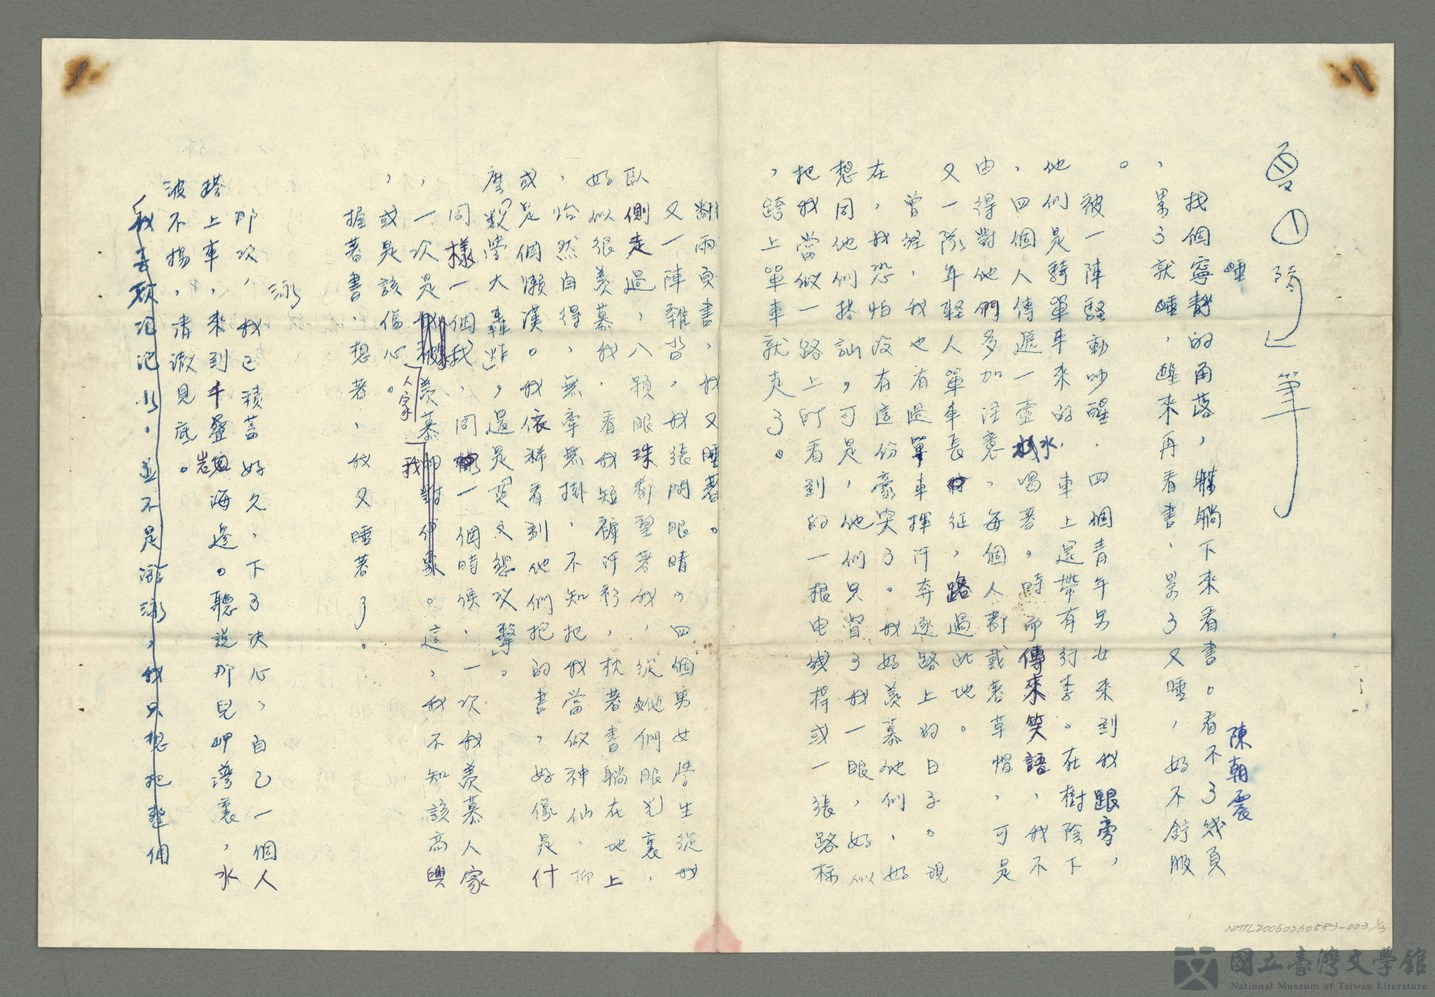 夏日隨筆
陳朝震
找個寧靜的角落，躺躺下來看書。看不了幾頁
，累了就睡，醒來再看書，累了又睡，好不舒服
。
被一陣騷動吵醒．四個青年男女來到我跟旁，
他們是騎單車來的．車上還帶有行李。在樹陰下
，四個人傳遞一壺水喝著。時而傳來笑語，我不
由得對他們多加注意，每個人都戴著草帽，可是
又一隊年輕人單車長征，路過此地。
曾經，我也有過單車揮汗奔逐路上的日子。現
在，我恐怕沒有這份豪興了。我好羨慕他們，好
想同他們搭訕，可是，他們只賞了我一眼，好似
把我當做一路上所看到的一根电线桿或一張路標
，跨上單車就走了。
翻兩頁書，我又睡著。
又一陣雜沓，我張開眼睛。四個男女學生從我
臥側走過，八顆眼珠都望著我，從她他們眼光裏，
好似很羨慕我．看我短褲汗衫，枕著書躺在地上
，怡然自得，無牽無掛，不知把我當做神仙，抑
或是個懶漢。我依稀看到他們把的書，好像是什
麼「數學大轟炸」，還是「英文總攻擊」。
同樣一個我，同一個時候，一次我羨慕人家
，一次是人家羨慕我。這，我不知該高興
，或是該傷心。
握著書，想著，我又睡著了。
泳
那次，我已積蓄好久，下了決心，自己一個人
搭上車，來到千疊岩海邊。聽說那兒岬灣裏，水
波不揚，清澈見底。
我喜歡泡泡水，並不是游泳，我只想把整個
NMTL20050260583-003
國立臺灣文學館
National Museum of Taiwan Literature